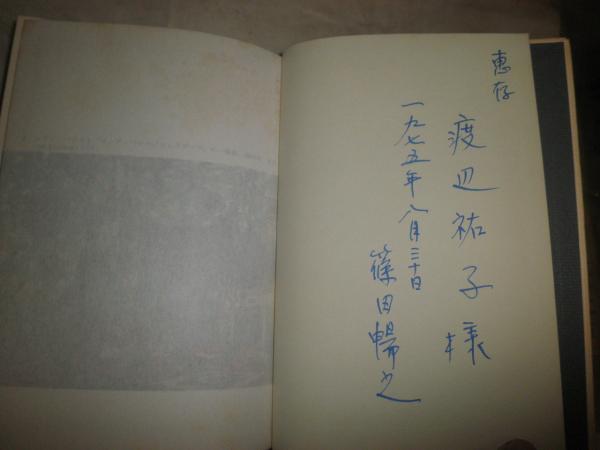 恵存
渡辺祐子様
一九七五年八月三十日
篠田暢之